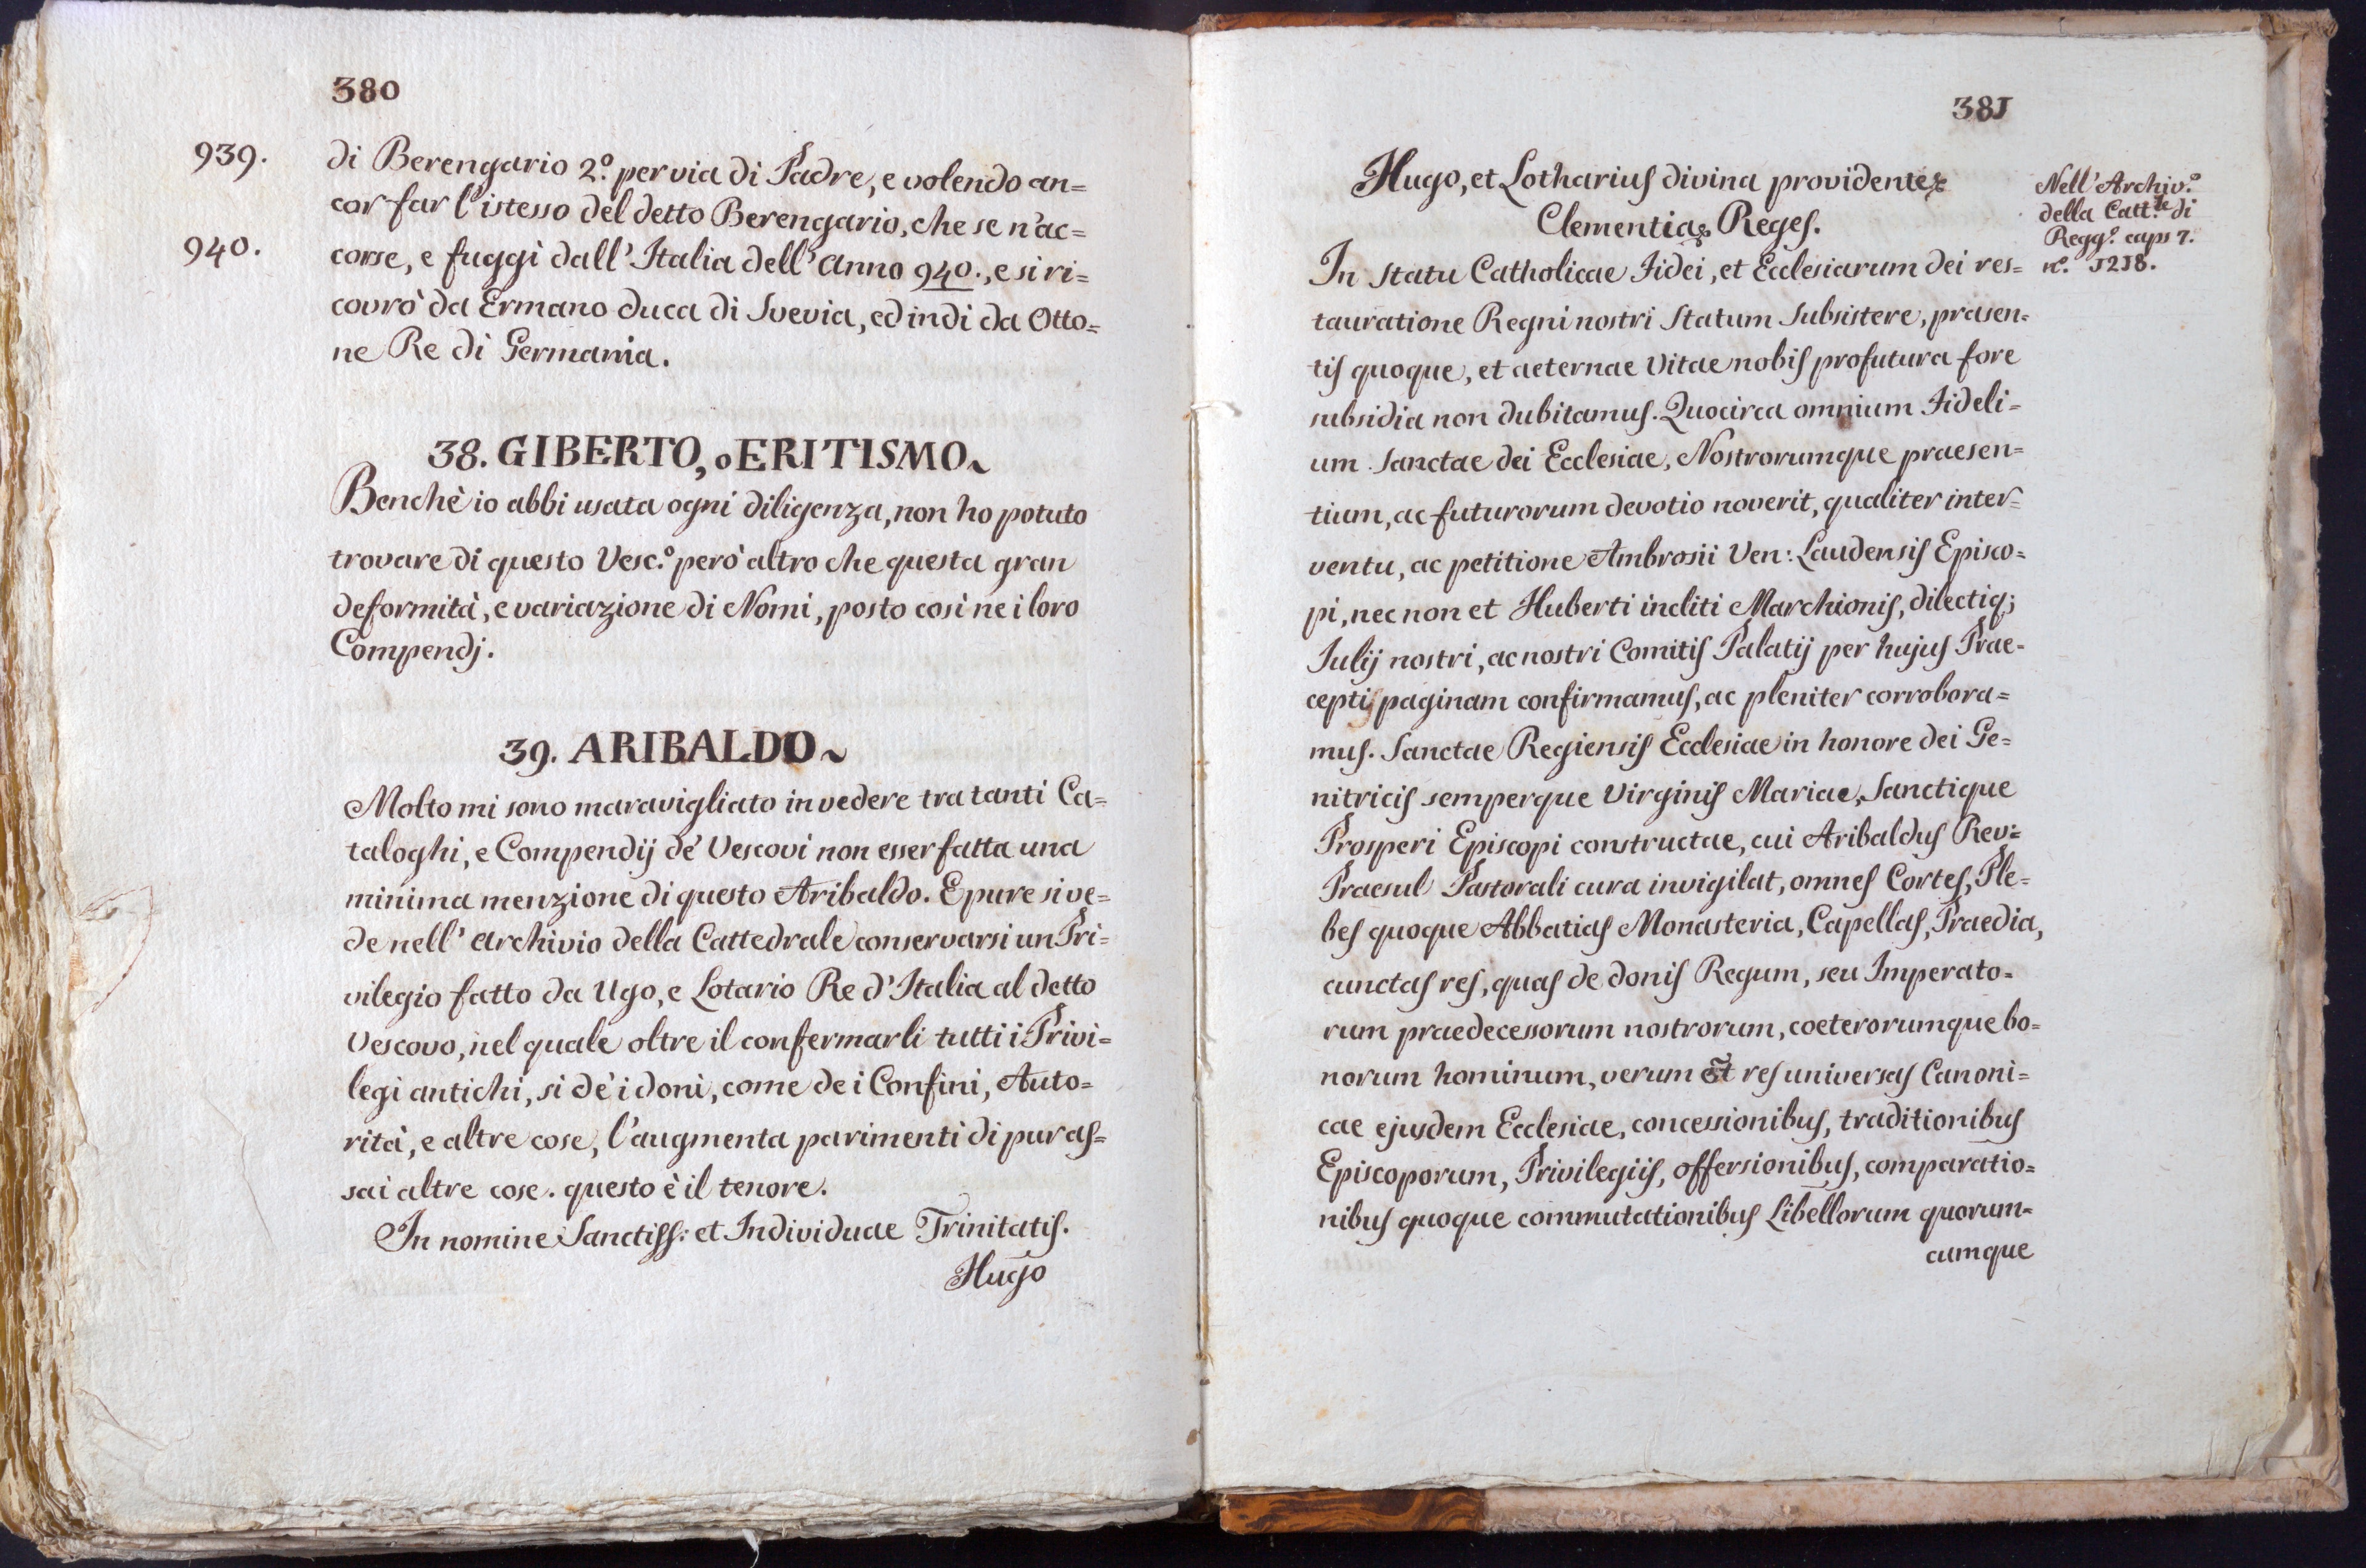 380
939.
di Berengario 2.º per via di Padre, e volendo an=
cor far l'istesso del detto Berengario, che se n'ac=
940.
corse, e fuggì dall' Italia dell' anno 940., e si ri=
covrò da Ermano duca di Svevia, ed indi da Otto=
ne Re di Germania.
38. GIBERTO, o ERITISMO~
Benchè io abbi usata ogni diligenza, non ho potuto
trovare di questo Vesc.º però altro che questa gran
deformità, e variazione di Nomi, posto così ne i loro
Compendj.
39. ARIBALDO~
Molto mi sono maravigliato in vedere tra tanti Ca=
taloghi, e Compendij de' Vescovi non esser fatta una
minima menzione di questo Aribaldo. E pure si ve=
de nell' archivio della Cattedrale conservarsi un Pri=
vilegio fatto da Ugo, e Lotario Re d'Italia al detto
Vescovo, nel quale oltre il confermarli tutti i Privi=
legi antichi, si de' i doni, come de i Confini, Auto=
rità, e altre cose, l'augmenta parimenti di pur aſ=
sai altre cose. questo è il tenore.
In nomine Sanctiſſ: et Individuae Trinitatiſ.
Hugo
381
Hugo, et Lothariuſ divina providente
Clementia Regeſ.
Nell' Archiv.º
della Catt.le di
Regg.º caps 7.
nº. 1218.
In Statu Catholicae Fidei, et Ecclesiarum dei res=
tauratione Regni nostri Statum Subsistere, prasen=
tiſ quoque, et aeternae Vitae nobiſ profutura fore
subsidia non dubitamuſ. Quocirca omnium Fideli=
um Sanctae dei Ecclesiae, Nostrorumque praesen=
tium, ac futurorum devotio noverit, qualiter inter=
ventu, ac petitione Ambrosii Ven: Laudensiſ Episco=
pi, nec non et Huberti incliti Marchioniſ, dilectiq;
Fulij nostri, ac nostri Comitiſ Palatij per hujuſ Prae=
cepti paginam confirmamuſ, ac pleniter corrobora=
muſ. Sanctae Regiensiſ Ecclesiae in honore dei Ge=
nitriciſ semperque Virginiſ Mariae, Sanctique
Prosperi Episcopi constructae, cui Aribalduſ Rev:
Praesul Pastorali cura invigilat, omneſ Corteſ, Ple=
beſ quoque Abbatiaſ Monasteria, Capellaſ, Praedia,
cunctaſ reſ, quaſ de doniſ Regum, seu Imperato=
rum praedecessorum nostrorum, coeterorumque bo=
norum hominum, verum et reſ universaſ Canoni=
cae ejusdem Ecclesiae, concessionibuſ, traditionibuſ
Episcoporum, Privilegiiſ, offersionibuſ, comparatio=
nibuſ quoque commutationibuſ Libellorum quorum=
cumque